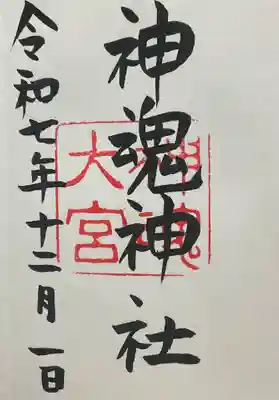 神魂神社
大宮
令和七年十二月一日